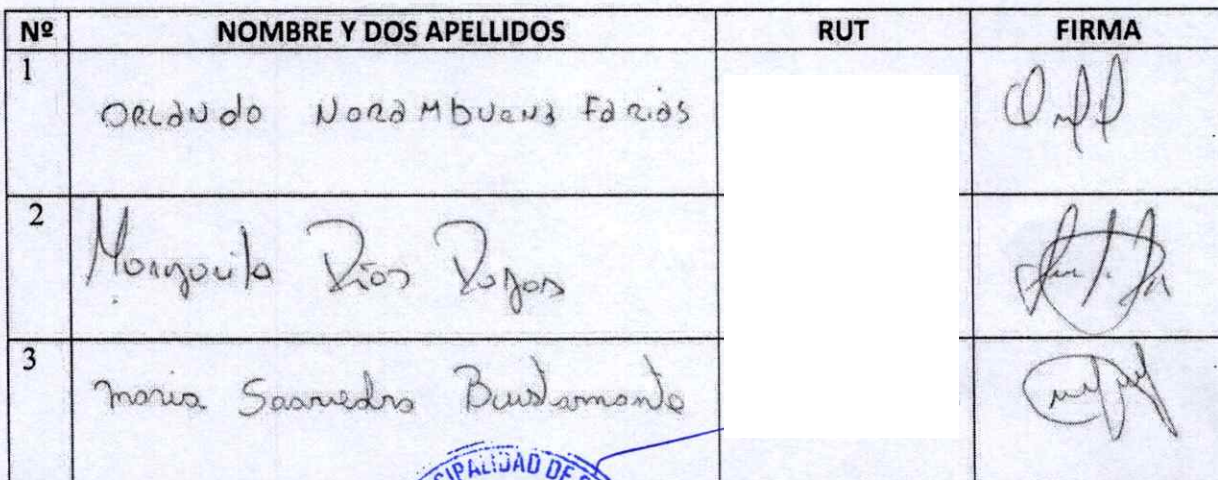 Nº NOMBRE Y DOS APELLIDOS RUT FIRMA
1 ORLANDO NORAMBUENA FARIAS
2 Margarita Rios
3 Maria Saavedra Bustamante
CIPALIDAD DE